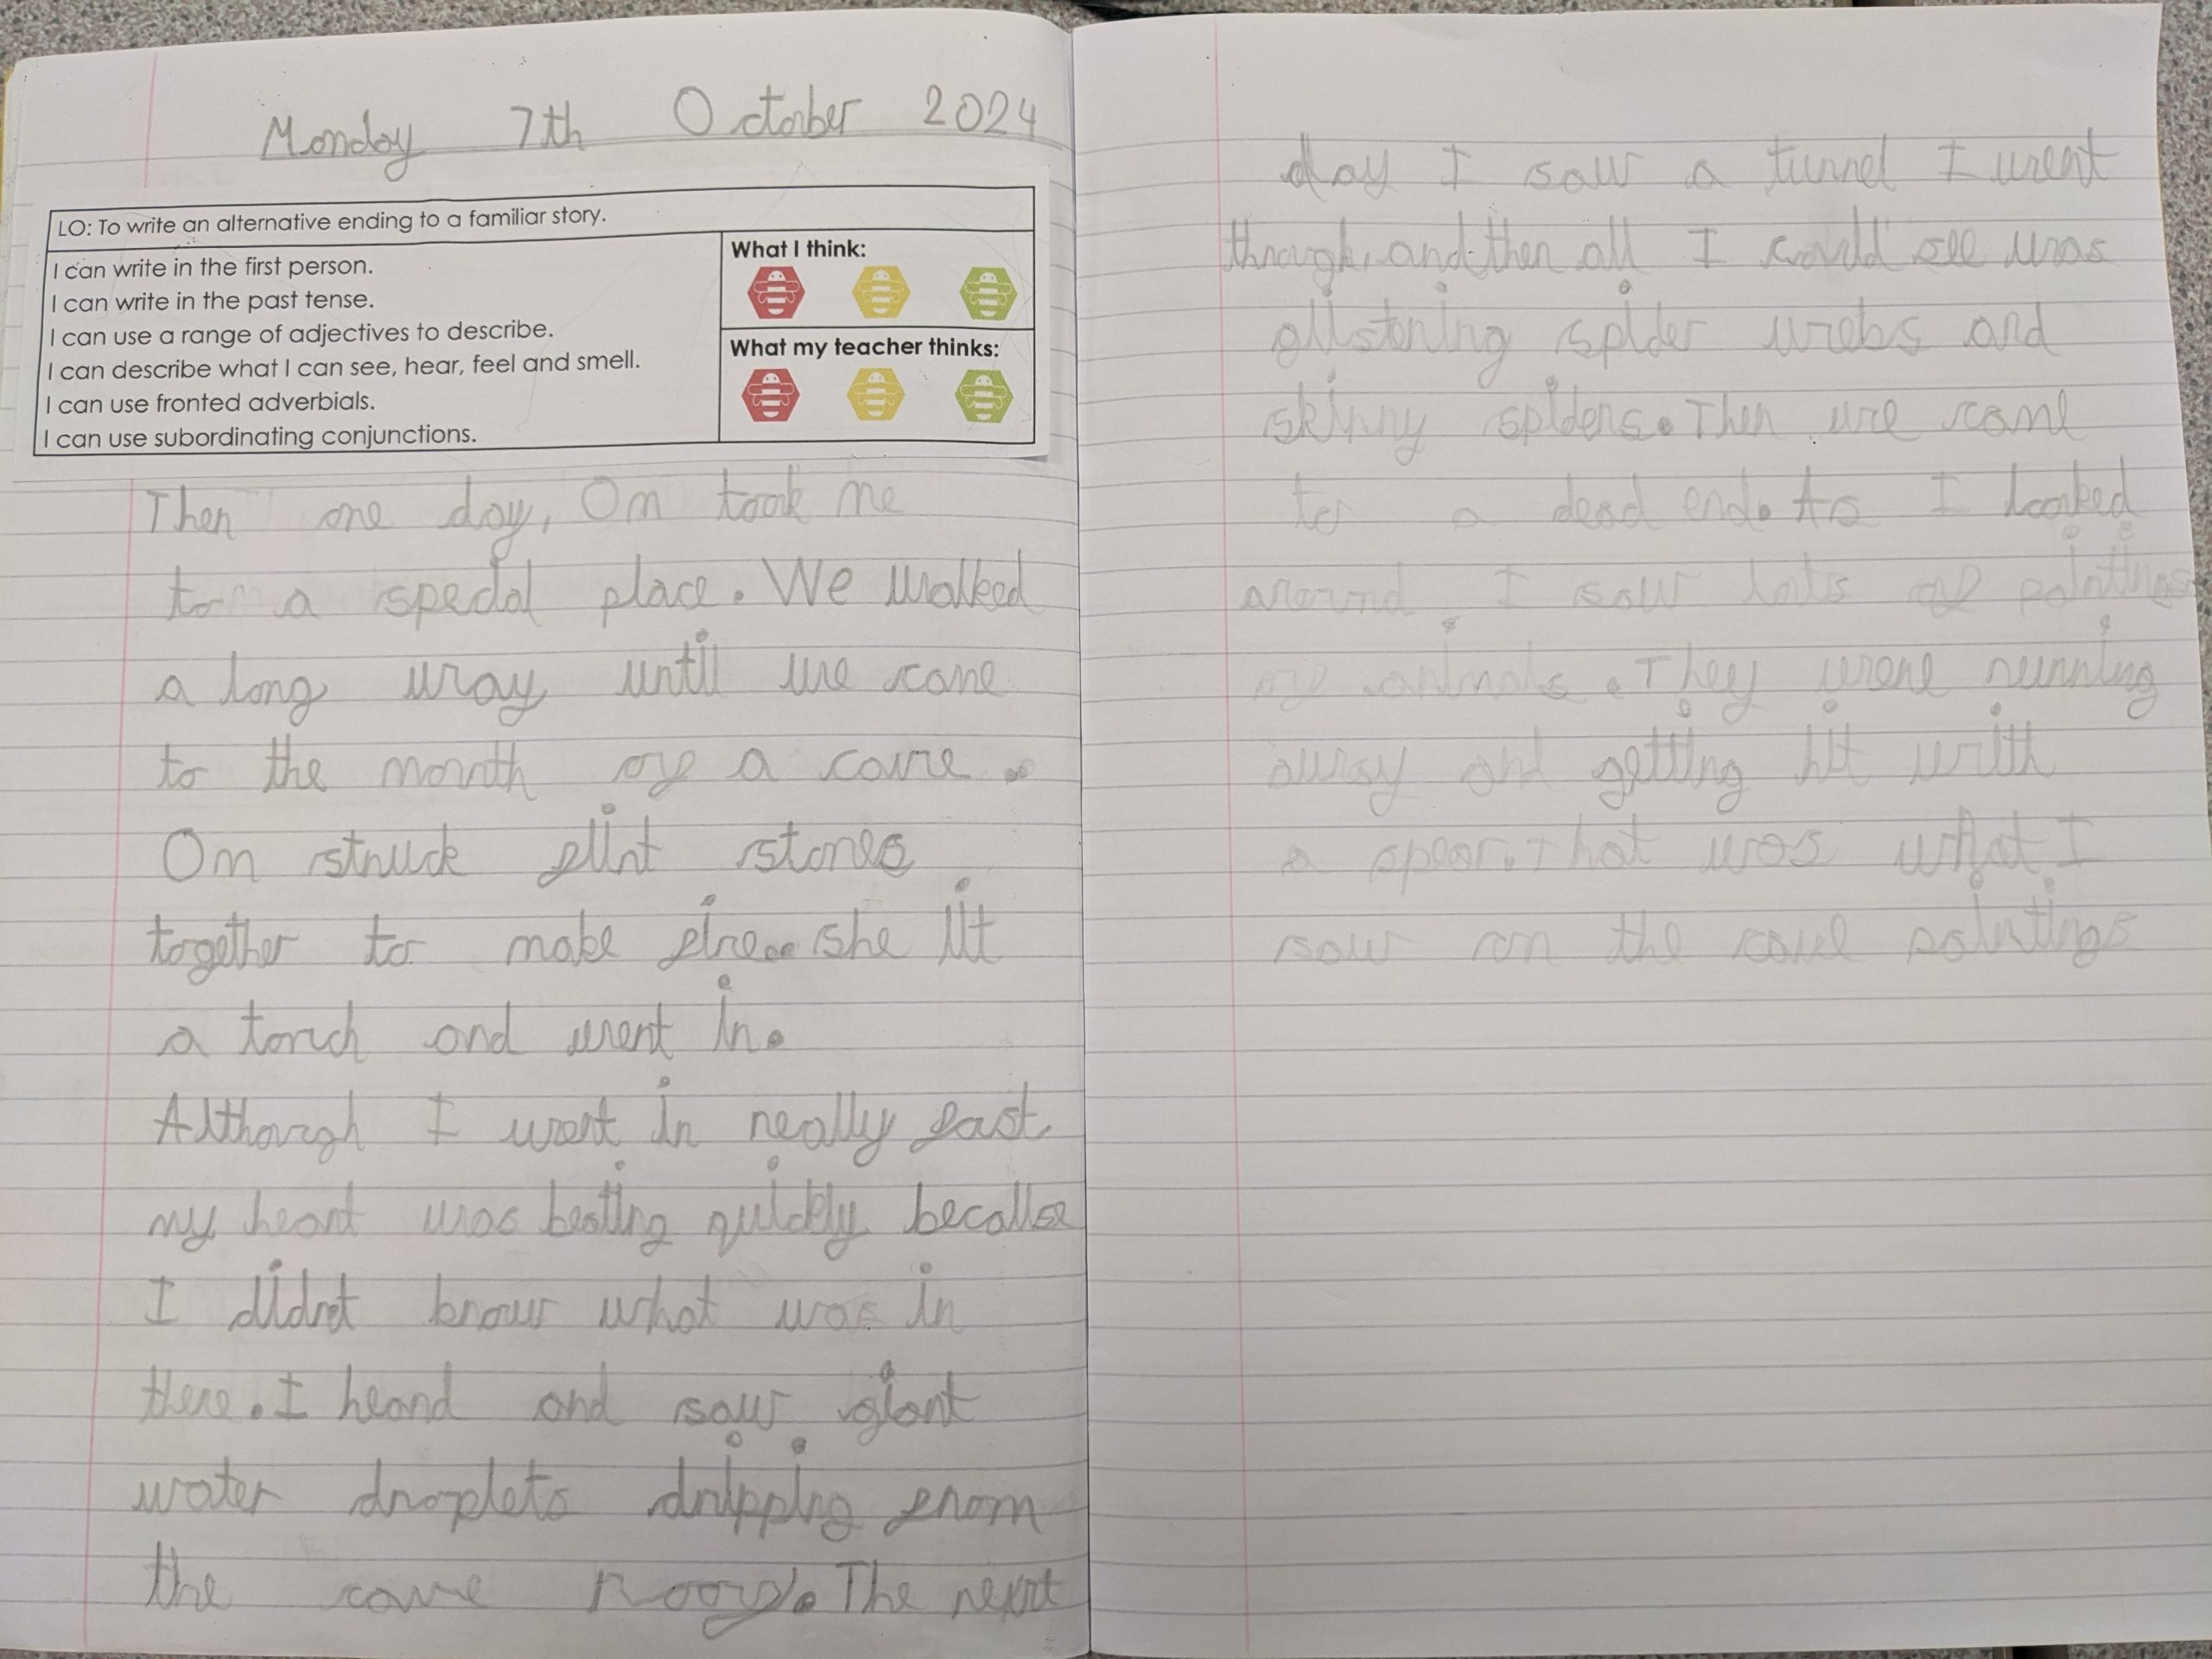 Monday 7th October 2024
LO: To write an alternative ending to a familiar story.
I can write in the first person.
I can write in the past tense.
I can use a range of adjectives to describe.
I can describe what I can see, hear, feel and smell.
I can use fronted adverbials.
I can use subordinating conjunctions.
What I think:
What my teacher thinks:
Then one day, Om took me
to a special place. We walked
a long way until we came
to the mouth of a cave.
Om struck flint stones
together to make fire. she lit
a torch and went in.
Although I went in really fast
my heart was beating quickly because
I didnt know what was in
there. I heard and saw giant
water droplets dripping from
the cave roof. The next
day I saw a tunnel I went
through, and then all I could see was
glistening spider webs and
skinny spiders. Then we came
to a dead end. As I looked
around, I saw lots of paintings
of animals. They were running
away and getting hit with
a spear. that was what I
saw on the cave paintings